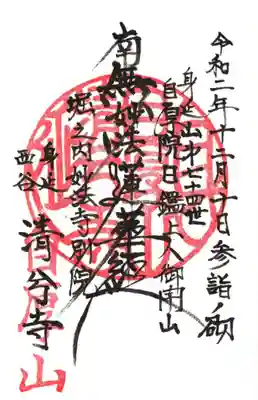 令和二年十二月十日参詣ノ砌
身延山才七十四世
自厚院日鑑上人御開山
南無妙法蓮華経
堀之内妙法寺別院
身延
西谷
清兮寺
山